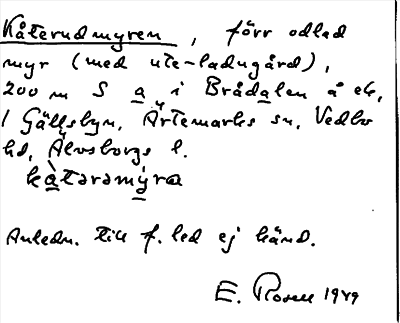 Kåterudmyren, förr odlad
myr (med ute-ladugård),
200 m S a i Brådalen å ek.
1 Gällsbyn, Ärtemarks sn, Vedbo
hd, Älvsborgs l.
kàtərəmýra
Anledn. till f. led ej känd.
E. Rosell 1949